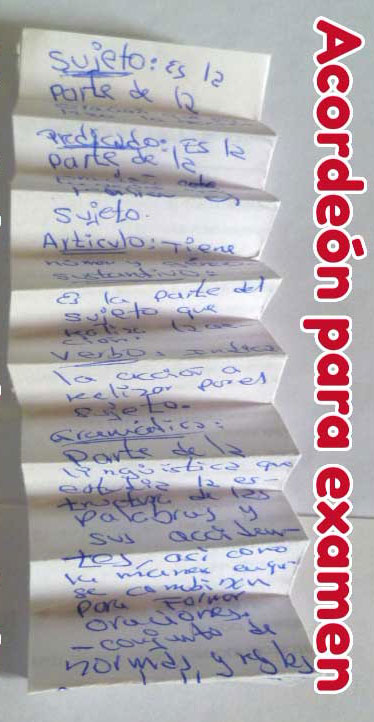 Acordeón para examen
Sujeto: Es la
parte de la
Predicado: Es la
parte de la
Sujeto.
Artículo: Tiene
numero y género
sustantivo:
Es la parte del
sujeto que
realiza la ac-
ción.
Verbo: indica
la acción a
relizar por el
sujeto.
Gramática:
parte de la
lingüística que
estudia la es-
tructura de las
palabras y
sus acciden-
tes, así como
la manera en que
se combinan
para formar
oraciones.
- conjunto de
normas y reglas